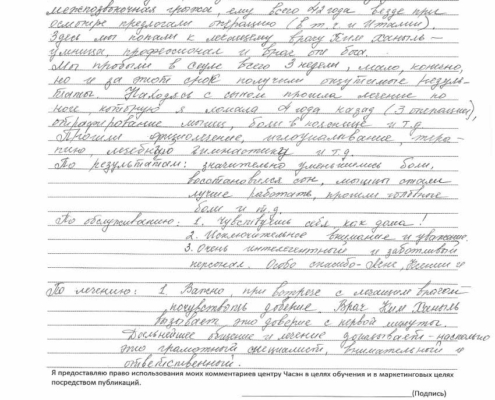 межпозвоночная грыжа, ему всего 21 года везде при
осмотре предлагали операцию (в т.ч. и Италии).
Здесь мы попали к лечащему врагу Ким Ханыль –
умница, профессионал и враг от бога.
Мы пробыли в Сеуле всего 3 недели, мало, конечно,
но и за этот срок получили ощутимые резуль-
таты. Находясь с сыном прошла лечение по
ноге, которую я ломала 4 года назад (3 операции),
атрофирование мышц, боли в колонце и т.д.
Прошли физиолечение, иглоукалывание, тера-
пию, лечебную гимнастику и т.д.
По результатам: значительно уменьшились боли,
восстановился сон, мышцы стали
лучше работать, прошли головные
боли и т.д.
По обслуживанию: 1. Чувствуешь себя как дома!
2. Исключительное внимание и уважение.
3. Очень интелегентный и заботливый
персонал. Особо спасибо –
По лечению: 1. Важно, при встрече с лечащим врагом
почувствовать доверие. Враг Ким Ханыль
вызывает это доверие с первой минуты.
Дальнейшее общение и лечение доказывает – насколько
это грамотный специалист, внимательный и
ответственный.
Я предоставляю право использования моих комментариев центру Часэн в целях обучения и в маркетинговых целях
посредством публикаций.
(Подпись)